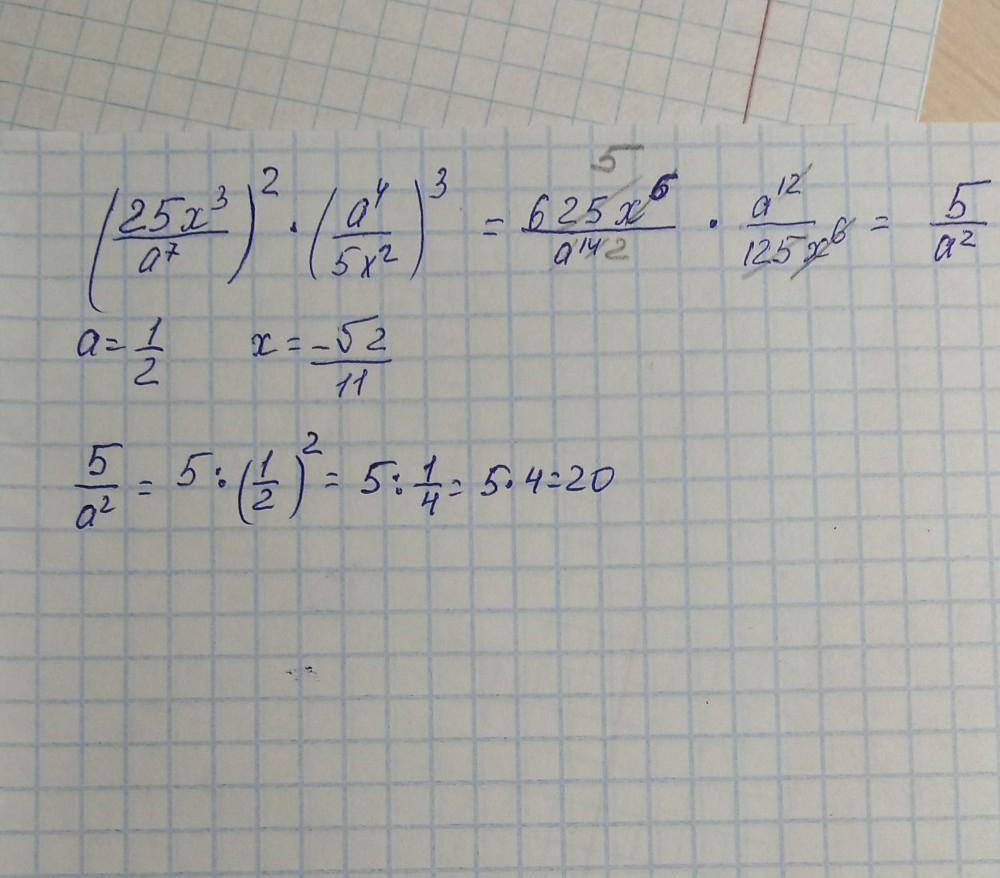 (25x³/a⁷)² · (a⁴/5x²)³ = 625x⁶/a¹⁴ 5 2 · a¹²/125x⁶ = 5/a²
a = 1/2 x = -√2/11
5/a² = 5 : (1/2)² = 5 : 1/4 = 5 · 4 = 20